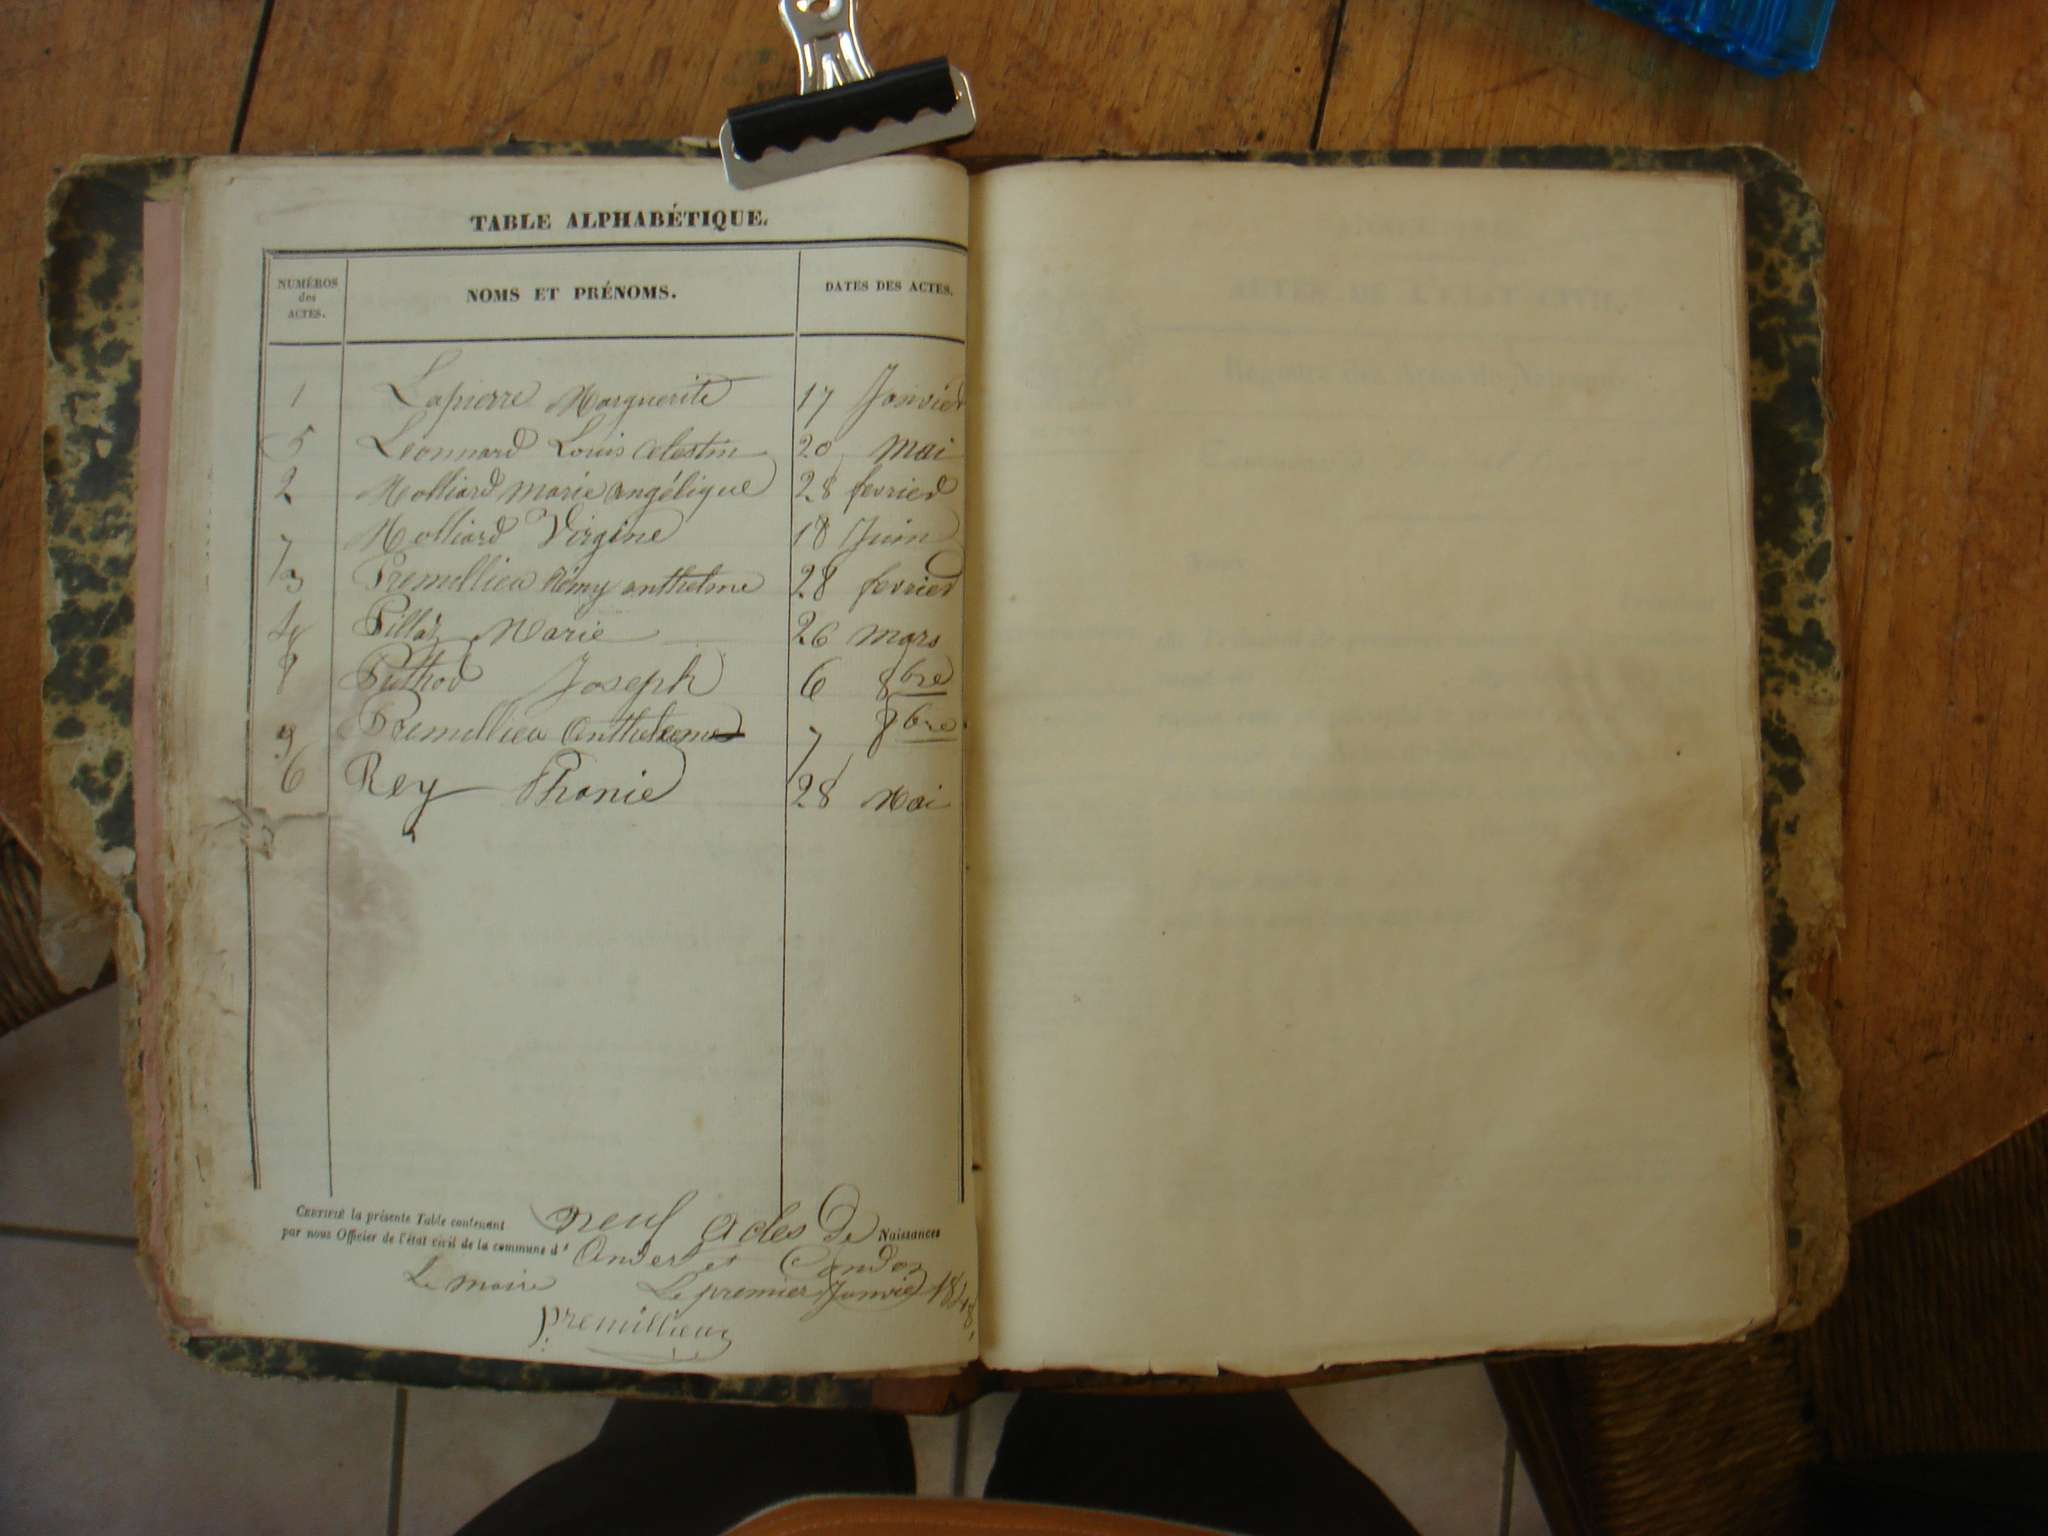 TABLE ALPHABÉTIQUE.
NUMÉROS des ACTES. NOMS ET PRÉNOMS. DATES DES ACTES.
1 Lapierre Marguerite 17 Janvier
5 Leonnard Louis Celestin 20 mai
2 Molliard marie angélique 28 fevrier
7 Molliard Virginie 18 Juin
3 Premillieu Rémy anthelme 28 fevrier
4 Pillaz Marie 26 mars
8 Puthod Joseph 6 8bre
9 Premillieu Anthelme 7 8bre
6 Rey Phanie 28 Mai
CERTIFIÉ la présente Table contenant neuf actes De Naissances
par nous Officier de l'état civil de la commune d' Andert et Condon
Le maire Le premier Janvier 1848,
premillieux